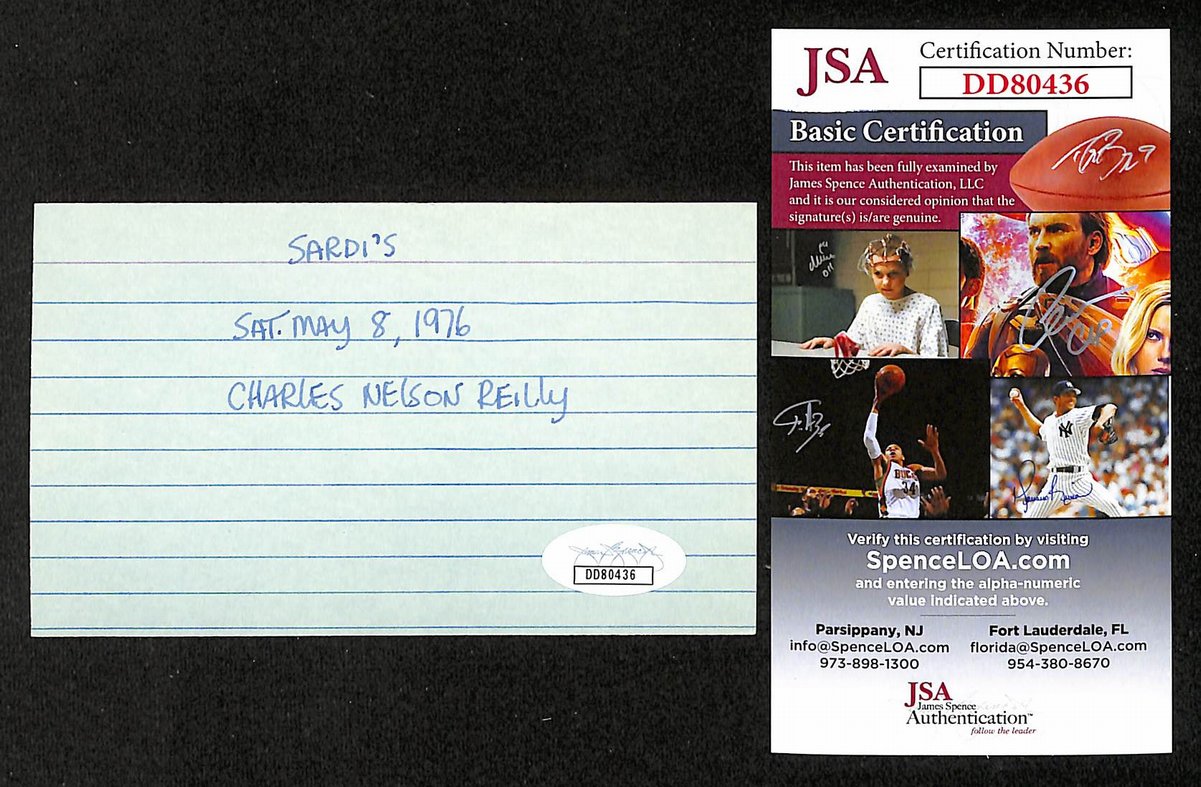 SARDI'S
SAT. MAY 8, 1976
CHARLES NELSON REILLY
DD80436
JSA
Certification Number:
DD80436
Basic Certification
This item has been fully examined by
James Spence Authentication, LLC
and it is our considered opinion that the
signature(s) is/are genuine.
BUCKS
34
NY
Verify this certification by visiting
SpenceLOA.com
and entering the alpha-numeric
value indicated above.
Parsippany, NJ
info@SpenceLOA.com
973-898-1300
Fort Lauderdale, FL
florida@SpenceLOA.com
954-380-8670
JSA
James Spence
Authentication™
follow the leader